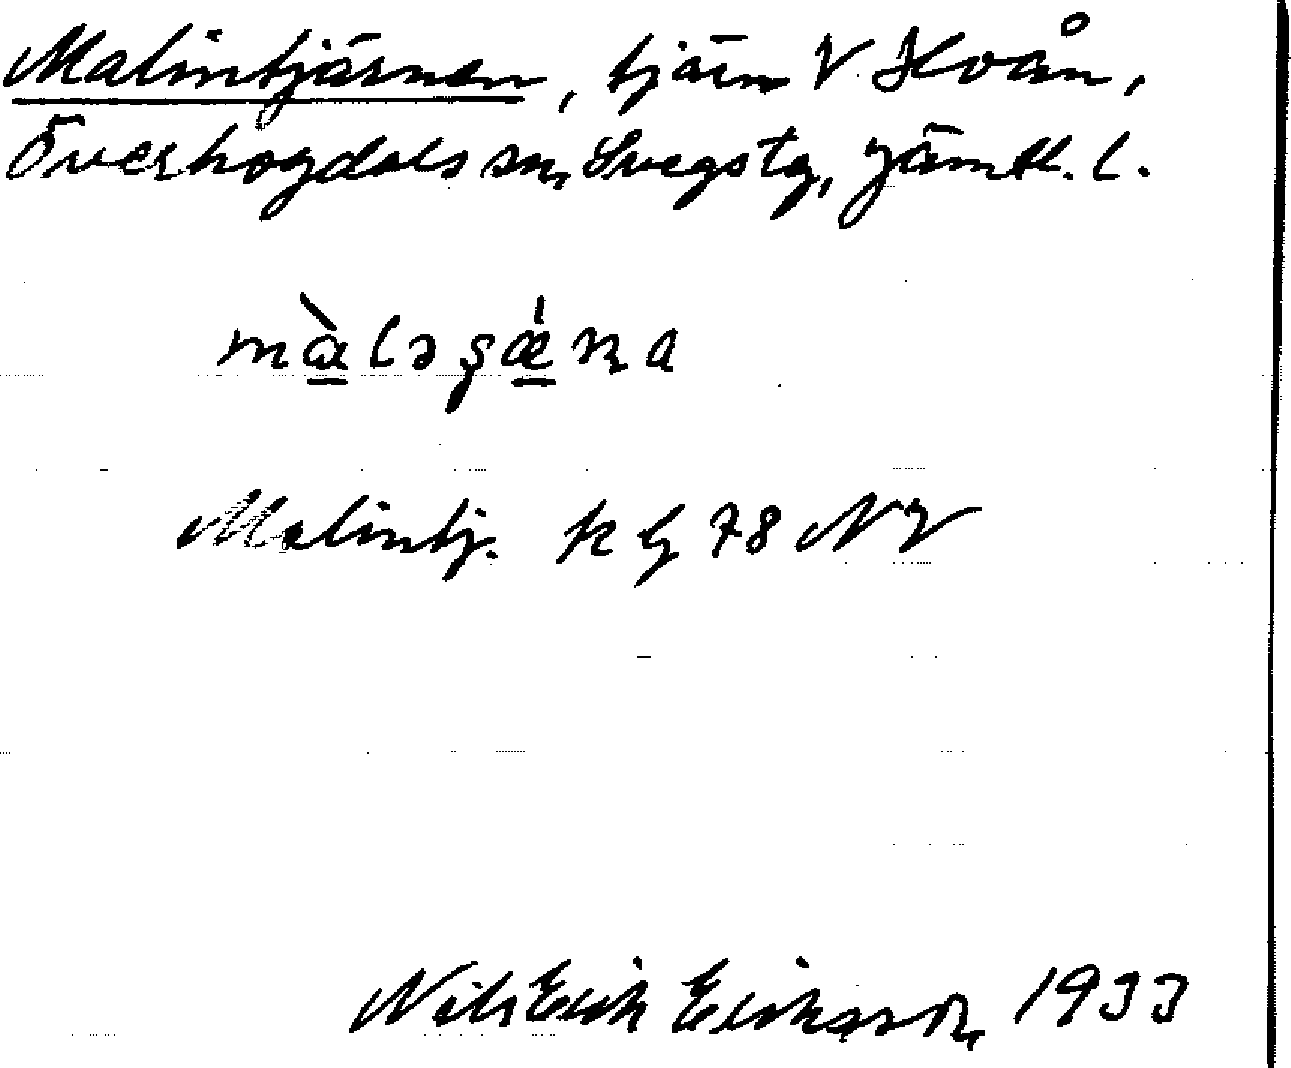 Malintjärnen, tjärn V Kvån,
Överhogdals sn, Svegs tg, Jämtl. l.
màləşǽɳa
Malintj. k bl 78 NV
Nils Erik Eriksson, 1933